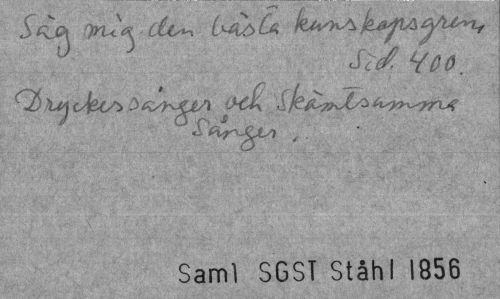 Säg mig den bästa kunskapsgren,
Sid. 400.
Dryckessånger och Skämtsamma
Sånger.
Saml SGST Ståhl 1856